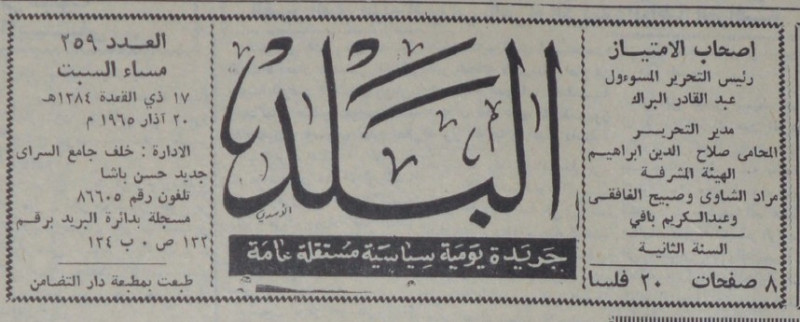 اصحاب الامتياز
رئيس التحرير المسوءول
عبد القادر البراك
مدير التحريـر
المحامى صلاح الدين ابراهيم
الهيئة المشرفة
مراد الشاوى وصبيح الغافقى
وعبدالكريم بافي
السنة الثانية
٨ صفحات ٢٠ فلسا
البلد
جريدة يومية سياسية مستقلة عامة
العـدد ٢٥٩
مساء السبت
١٧ ذي القعدة ١٣٨٤هـ
٢٠ آذار ١٩٦٥ م
الادارة : خلف جامع السراى
جديد حسن باشا
تلفون رقم ٨٦٦٠٥
مسجلة بدائرة البريد برقم
١٣٢ ص ٠ ب ١٣٤
طبعت بمطبعة دار التضامن